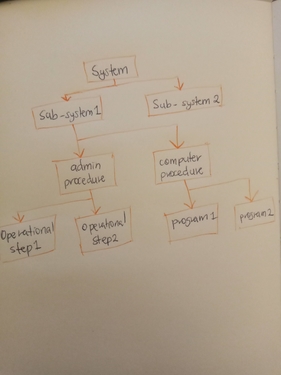 System
Sub-system 1
Sub-system 2
admin
procedure
computer
procedure
Operational
step 1
operational
step 2
program 1
program 2